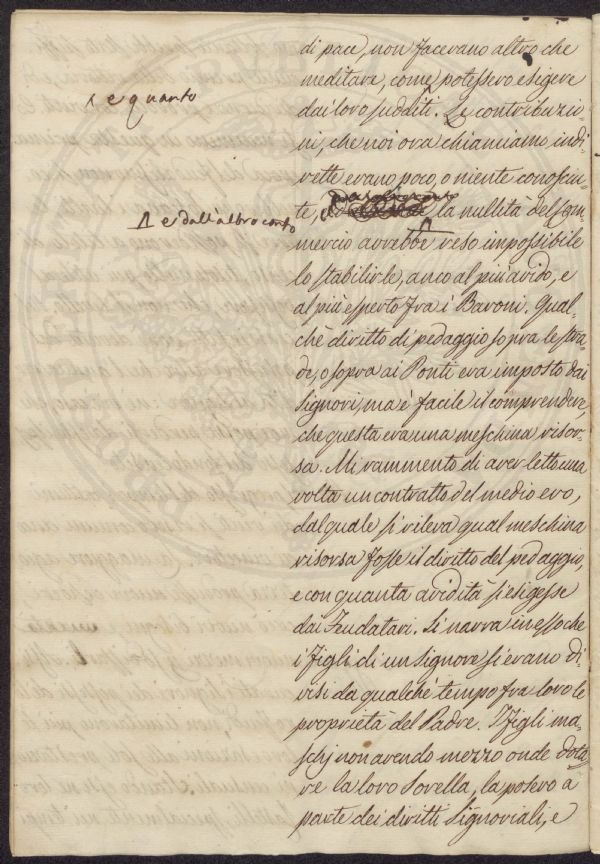 di pace, non facevano altro che
meditare, come potessero esigere
^ e quanto
dai loro sudditi. Le contribuzio-
ni, che noi ora chiamiamo indi-
rette erano poco, o niente conosciu-
te, la nullità del Com-
^ e dall'altro canto
mercio avrebbe reso impossibile
lo stabilirle, anco al più avido, e
al più esperto fra i Baroni. Qual-
chè diritto di pedaggio sopra le stra-
de, o sopra ai Ponti era imposto dai
Signori, ma è facile il comprendere,
che questa era una meschina risor-
sa. Mi rammento di aver letto una
volta un contratto del medio evo,
dal quale si rileva qual meschina
risorsa fosse il diritto del pedaggio,
e con quanta avidità si esigesse
dai Feudatari. Si narra in esso che
i Figli di un Signore si erano di-
visi da qualchè tempo fra loro le
proprietà del Padre. I figli ma-
schj non avendo mezzo onde dota-
re la loro Sorella, la posero a
parte dei diritti Signoriali, e